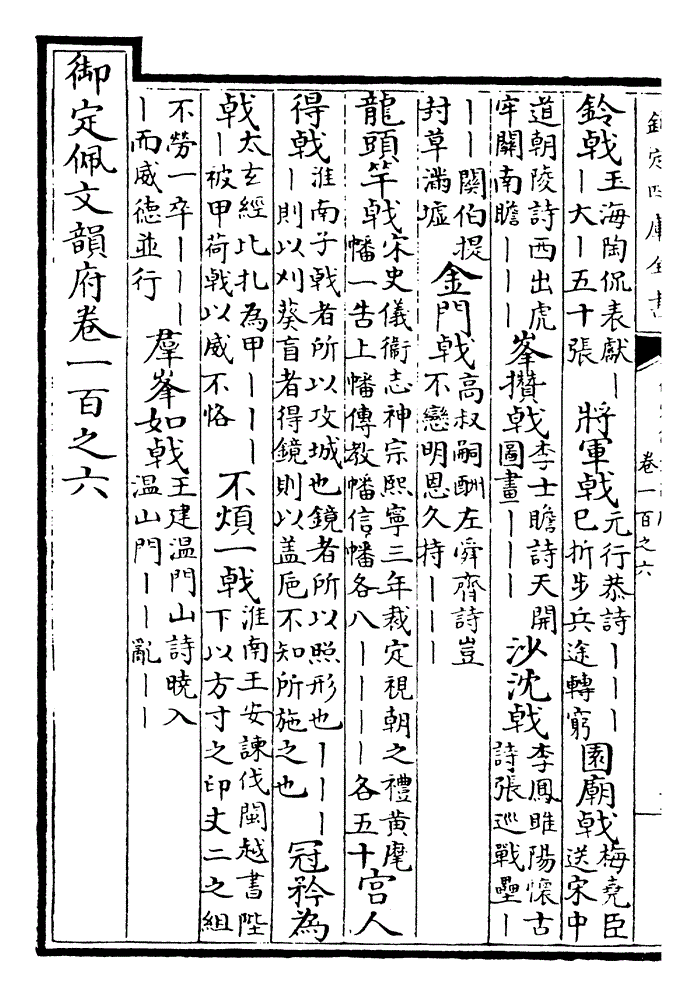 欽定四庫全書
卷一百之六
鈴戟玉海陶侃表獻｜｜大｜五十張將軍戟元行恭詩｜｜｜已折步兵途轉窮園廟戟梅堯臣送宋中
道朝陵詩西出虎牢關南瞻｜｜｜峯攢戟李士瞻詩天開圖畫｜｜｜沙沈戟李鳳睢陽懷古詩張巡戰壘｜
｜｜閼伯提封草滿墟金門戟高叔嗣酬左舜齊詩豈不戀明恩久持｜｜｜
龍頭竿戟宋史儀衞志神宗熙寧三年裁定視朝之禮黃麾幡一告上幡傳教幡信幡各八｜｜｜｜各五十宫人
得戟淮南子戟者所以攻城也鏡者所以照形也｜｜｜｜則以刈葵盲者得鏡則以盖巵不知所施之也冠矜為
戟太玄經比札為甲｜｜｜｜被甲荷戟以威不恪不煩一戟淮南王安諫伐閩越書陛下以方寸之印丈二之組
不勞一卒｜｜｜｜而威德並行羣峯如戟王建温門山詩曉入温山門｜｜亂｜｜
御定佩文韻府卷一百之六